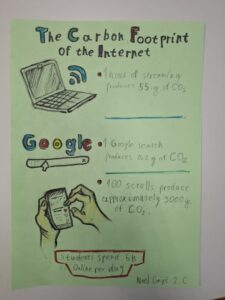 The Carbon Footprint
of the Internet
• 1 hour of streaming
produces 55 g of CO₂
Google
• 1 Google search
produces 0.2 g of CO₂
• 100 scrolls produce
approximately 3000g
of CO₂.
Students spend
online per day
2.C